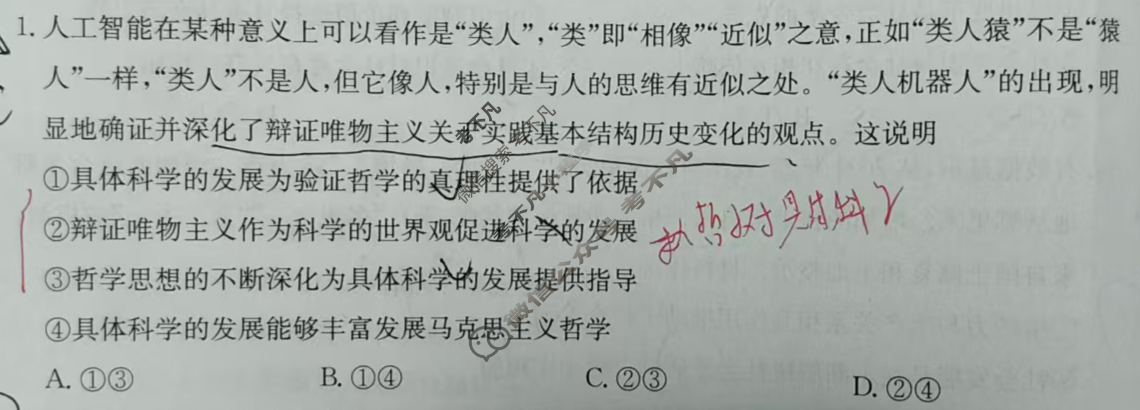 1. 人工智能在某种意义上可以看作是“类人”,“类”即“相像”“近似”之意,正如“类人猿”不是“猿
人”一样,“类人”不是人,但它像人,特别是与人的思维有近似之处。“类人机器人”的出现,明
显地确证并深化了辩证唯物主义关于实践基本结构历史变化的观点。这说明
①具体科学的发展为验证哲学的真理性提供了依据
②辩证唯物主义作为科学的世界观促进科学的发展
③哲学思想的不断深化为具体科学的发展提供指导
④具体科学的发展能够丰富发展马克思主义哲学
A. ①③ B. ①④ C. ②③ D. ②④
微信搜索 考不凡
微信公众号 考不凡